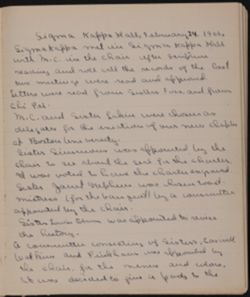 Sigma Kappa Hall, February 24, 1904.
Sigma Kappa met in Sigma Kappa Hall
with M.C. in the chair. After Scripture
reading and roll call the records of the last
two meetings were read and approved.
Letters were read from Sister and from
Chi Psi.
M.C. and Sister were chosen as
delegates for the of our new chapter
at Boston University.
Sister was appointed by the
chair to see about the for the charter.
It was voted to have the charter
Sister was chosen toast
mistress (for the banquet) by a committee
appointed by the chair.
Sister was appointed to revise
the history.
A committee consisting of Sisters
and was appointed by
the chair, for the menu and
It was decided to give to the